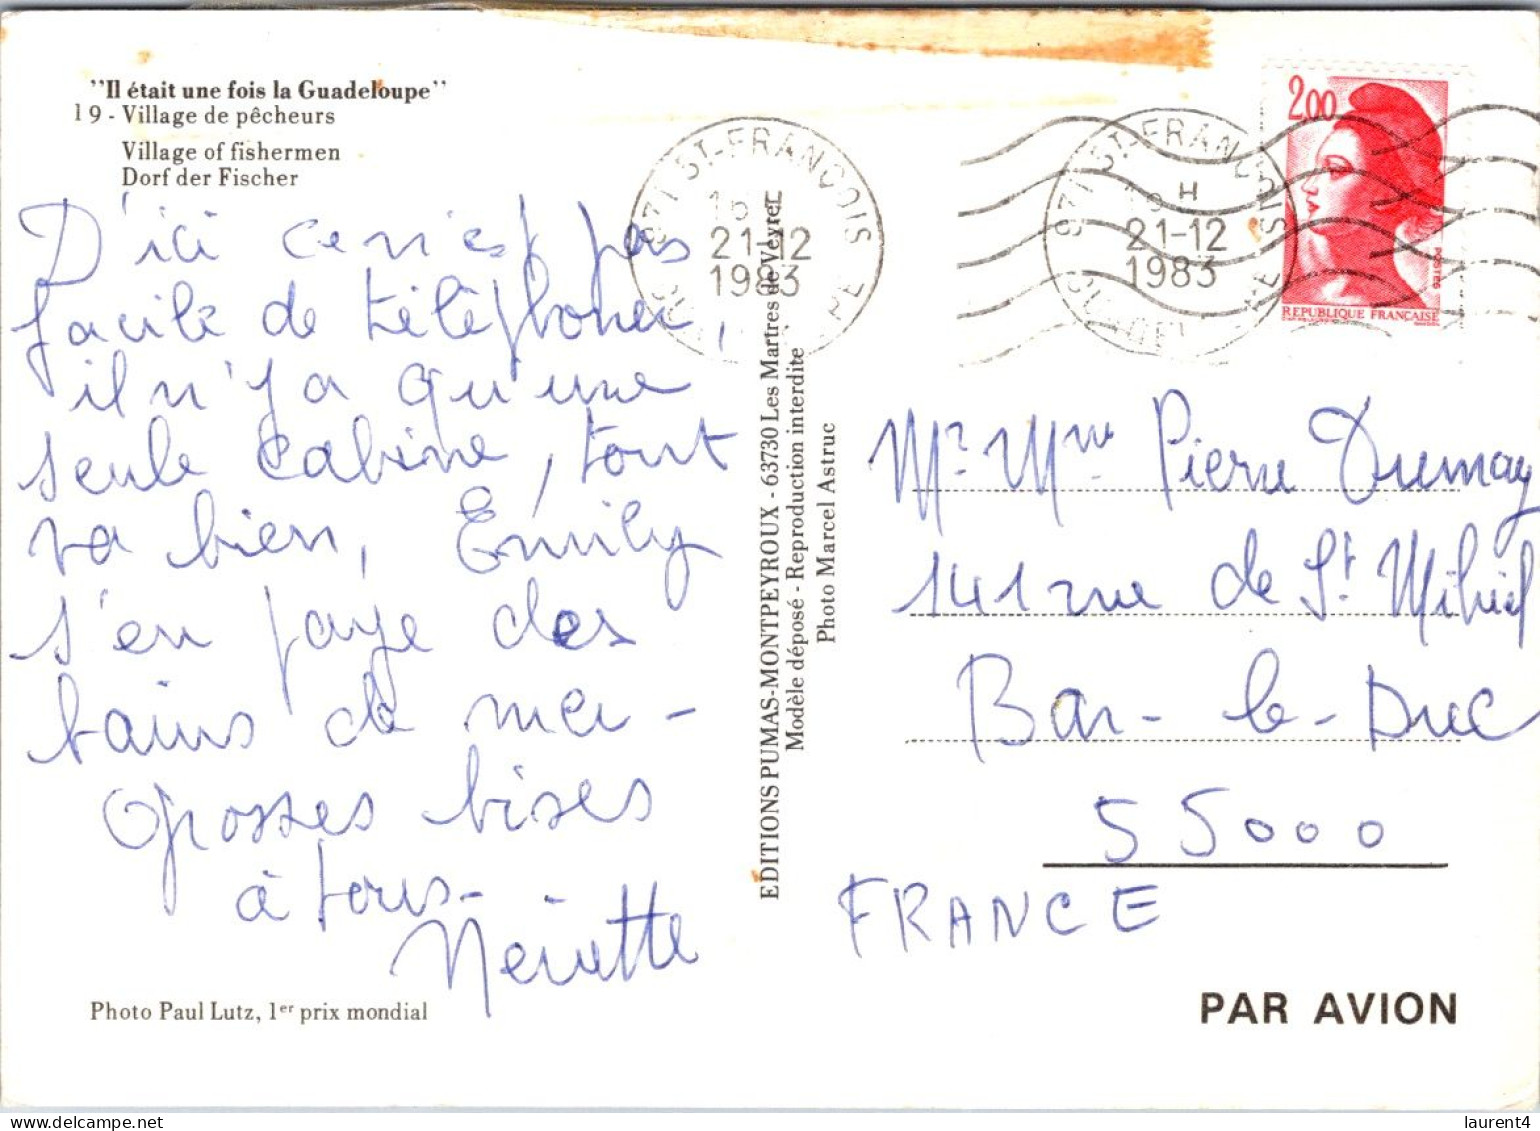 "Il était une fois la Guadeloupe"
19 - Village de pêcheurs
Village of fishermen
Dorf der Fischer
D'ici ce n'est pas
facile de téléphoner,
il n'y a qu'une
seule cabine, tout
va bien, Emily
s'en paye des
bains de mer -
Grosses bises
à tous -
Photo Paul Lutz, 1er prix mondial
EDITIONS PUMAS-MONTPEYROUX - 63730 Les Martres de Veyre
Modèle déposé - Reproduction interdite
Photo Marcel Astruc
971 ST-FRANCOIS
21-12
1983
971 ST-FRANCOIS
H
21-12
1983
2,00
POSTES
REPUBLIQUE FRANÇAISE
Mr. Mme Pierre Dumay
141 rue de St Mihiel
Bar-le-Duc
55000
FRANCE
PAR AVION
laurent4